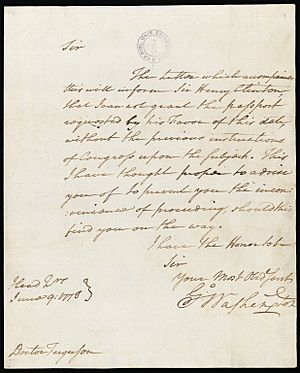 Sir
The Letter which accompanies
this will inform Sir Henry Clinton
that I can not grant the passport
requested by his Favor of this date
without the previous instructions
of Congress upon the subject. This
I have thought proper to advise
you of to prevent you the incon-
venience of proceeding, should this
find you on the way.
I have the Honor to be
Sir
Your Most Obed Servt
Go Washington
Head Qrs
June 9. 1778
Doctor Ferguson